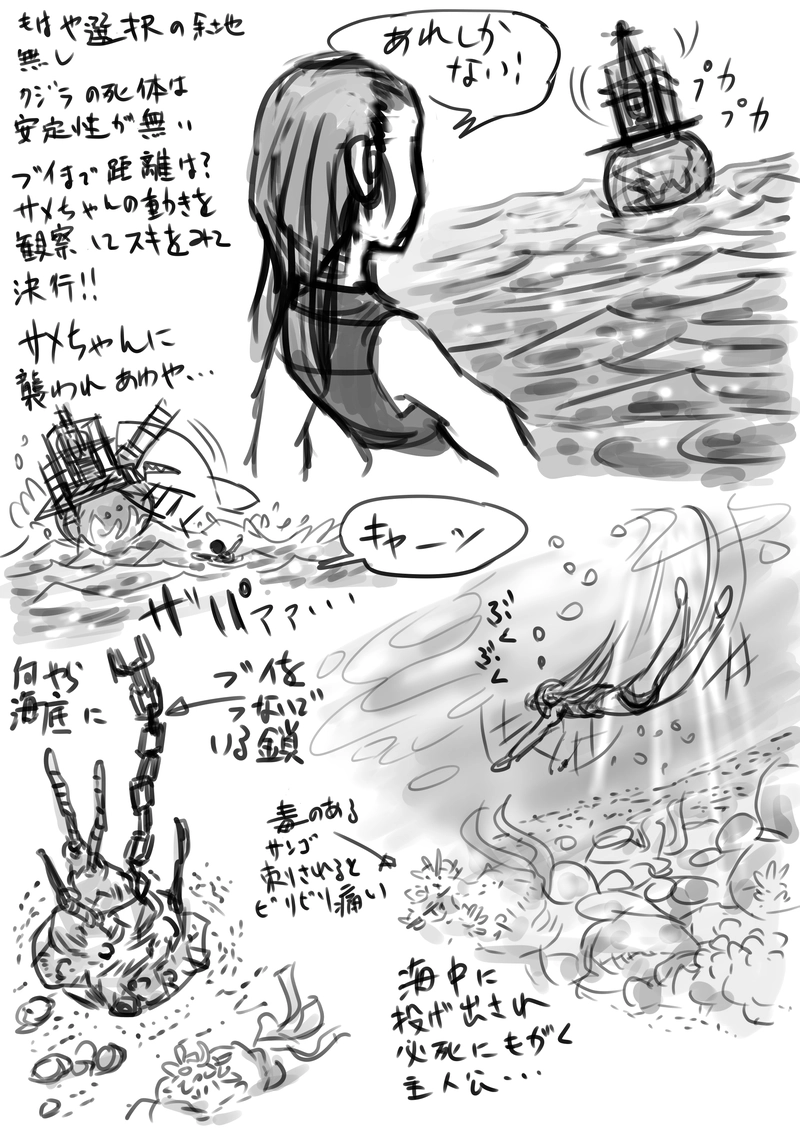 もはや選択の余地
無し
クジラの死体は
安定性が無い
ブイまで距離は?
サメちゃんの動きを
観察してスキをみて
決行!!
サメちゃんに
襲われあわや…
あれしか
ない!
プカ
プカ
キャーッ
ザパァァ…
ぶく
ぶく
何やら
海底に
ブイを
つないで
いる鎖
毒のある
サンゴ
刺りされると
ビリビリ痛い
海中に
投げ出され
必死にもがく
主人公…